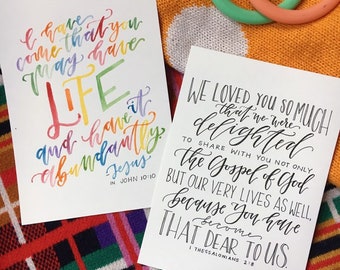 I have
come that you
may have
LIFE
and have it
abundantly
Jesus
IN JOHN 10:10
WE LOVED YOU SO MUCH
that we were
delighted
TO SHARE WITH YOU NOT ONLY
the Gospel of God
BUT OUR VERY LIVES AS WELL,
because you have
become
THAT DEAR TO US.
1 THESSALONIANS 2:8